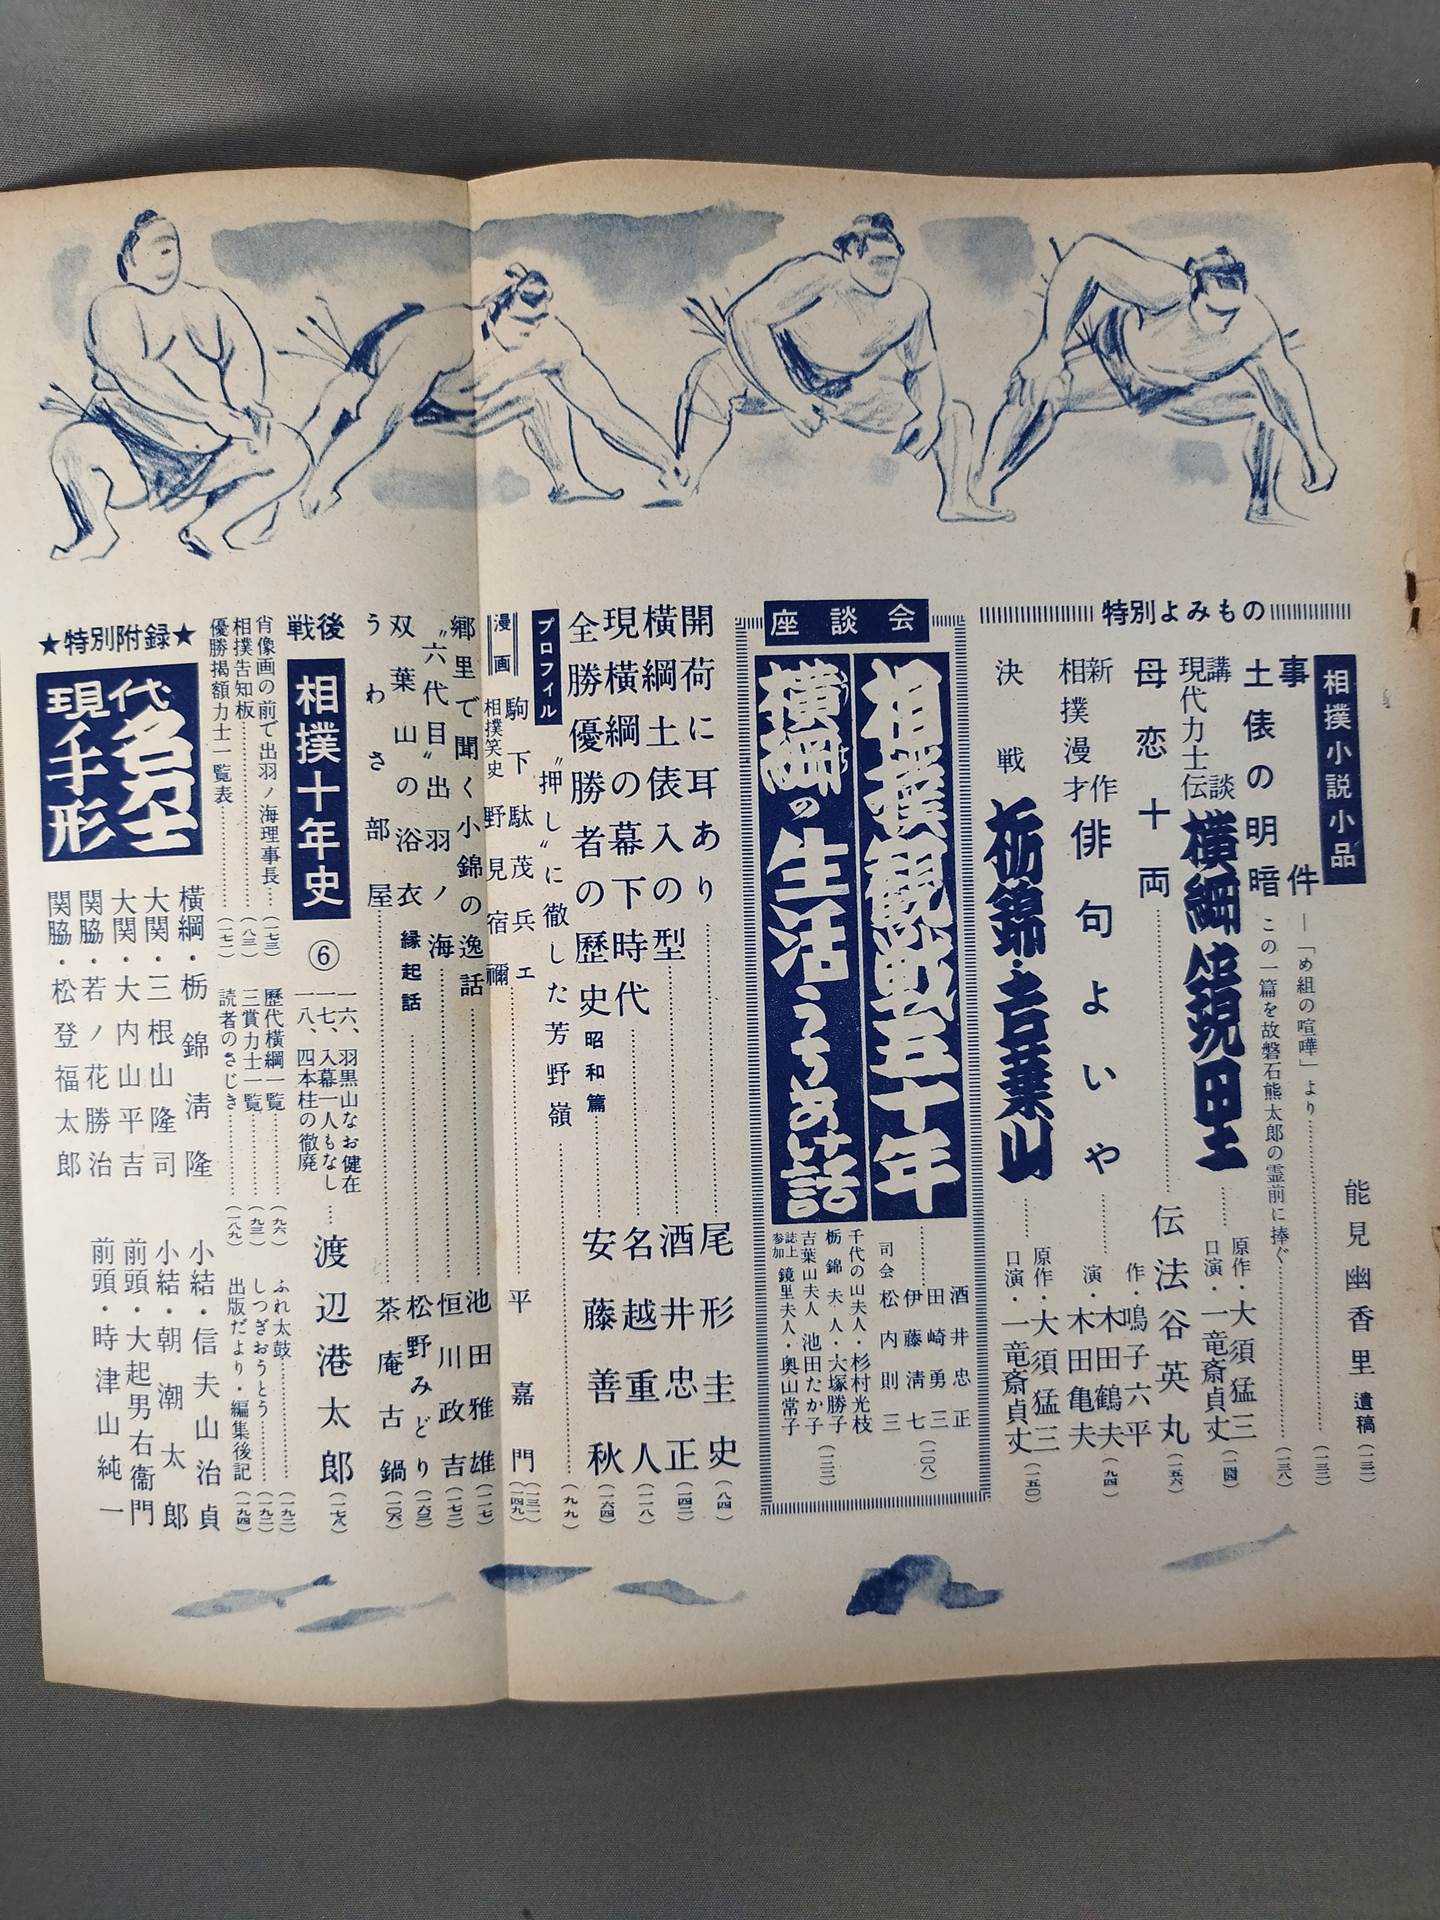 相撲小説小品
能見幽香里 遺稿 (一三一)
事件 ―「め組の喧嘩」より (一三三)
土俵の明暗 この一篇を故磐石熊太郎の霊前に捧ぐ (一三八)
特別よみもの
講談 現代力士伝 横綱 鏡里
原作・大須猛三
口演・一竜斎貞丈
母恋十両 伝法谷英丸 (一五六)
新作 相撲漫才 俳句よいや
作・鳴子六平
演・木田鶴夫
木田亀夫 (九四)
決戦 栃錦・吉葉山
原作・大須猛三
口演・一竜斎貞丈 (一五〇)
座談会
相撲観戦五十年
酒井忠正
田崎勇三
伊藤清七
司会 松内則三 (一〇八)
横綱の生活うちあけ話
千代の山夫人・杉村光枝
栃錦夫人・大塚勝子
吉葉山夫人 池田たか子
誌上参加 鏡里夫人・奥山常子
開荷に耳あり 尾形圭史 (八四)
横綱土俵入の型 酒井忠正
現横綱の幕下時代 名越重人 (一一八)
全勝優勝者の歴史 昭和篇 安藤善秋 (一六四)
プロフィル “押し”に徹した芳野嶺 (九九)
漫画
駒下駄茂兵ェ (一三一)
相撲笑史 野見宿禰 平嘉門 (一四九)
郷里で聞く小錦の逸話 池田雅雄 (一一七)
“六代目”出羽ノ海 恒川政吉 (一七二)
双葉山の浴衣 縁起話 松野みどり (一六三)
うわさ部屋 茶庵古鍋 (一〇六)
戦後 相撲十年史 ⑥
一六、羽黒山なお健在
一七、入幕一人もなし
一八、四本柱の徹廃
渡辺港太郎 (一七八)
肖像画の前で出羽ノ海理事長 (一七三)
相撲告知板 (八三)
優勝掲額力士一覧表 (一七一)
歴代横綱一覧 (九六)
三賞力士一覧 (九三)
読者のさじき (一八九)
ふれ太鼓 (一九二)
しつぎおうとう (一九二)
出版だより・編集後記 (一九四)
★特別附録★
現代名力士手形
横綱・栃錦清隆
大関・三根山隆司
大関・大内山平吉
関脇・若ノ花勝治
関脇・松登福太郎
小結・信夫山治貞
小結・朝潮太郎
前頭・大起男右衛門
前頭・時津山純一